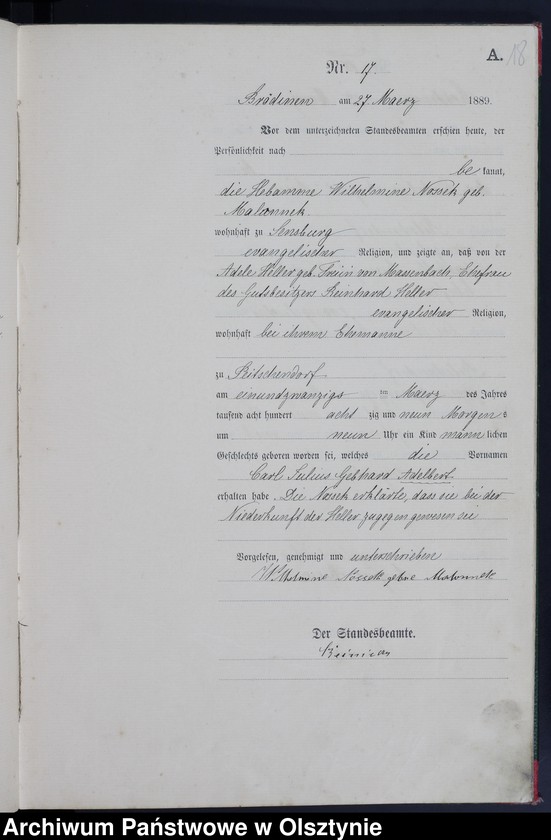 A. 18
Nr. 17.
Brödinen am 27 Maerz 1889.
Vor dem unterzeichneten Standesbeamten erschien heute, der
Persönlichkeit nach
be kannt,
die Hebamme Wilhelmine Nossek geb.
Malonnek.
wohnhaft zu Sensburg
evangelischer Religion, und zeigte an, daß von der
Adele Heller geb. Freiin von Massenbach, Ehefrau
des Gutsbesitzers Reinhard Heller
evangelischer Religion,
wohnhaft bei ihrem Ehemanne
zu
am einundzwanzigs ten Maerz des Jahres
tausend acht hundert acht zig und neun Morgens
um neun Uhr ein Kind männ lichen
Geschlechts geboren worden sei, welches die Vornamen
Carl Julius Gebhard Adelbert
erhalten habe. Die Nossek erklärte, dass sie bei der
Niederkunft der Heller zugegen gewesen sei
Vorgelesen, genehmigt und unterschrieben
Wilhelmine Nossek geb Malonnek
Der Standesbeamte.
Archiwum Państwowe w Olsztynie